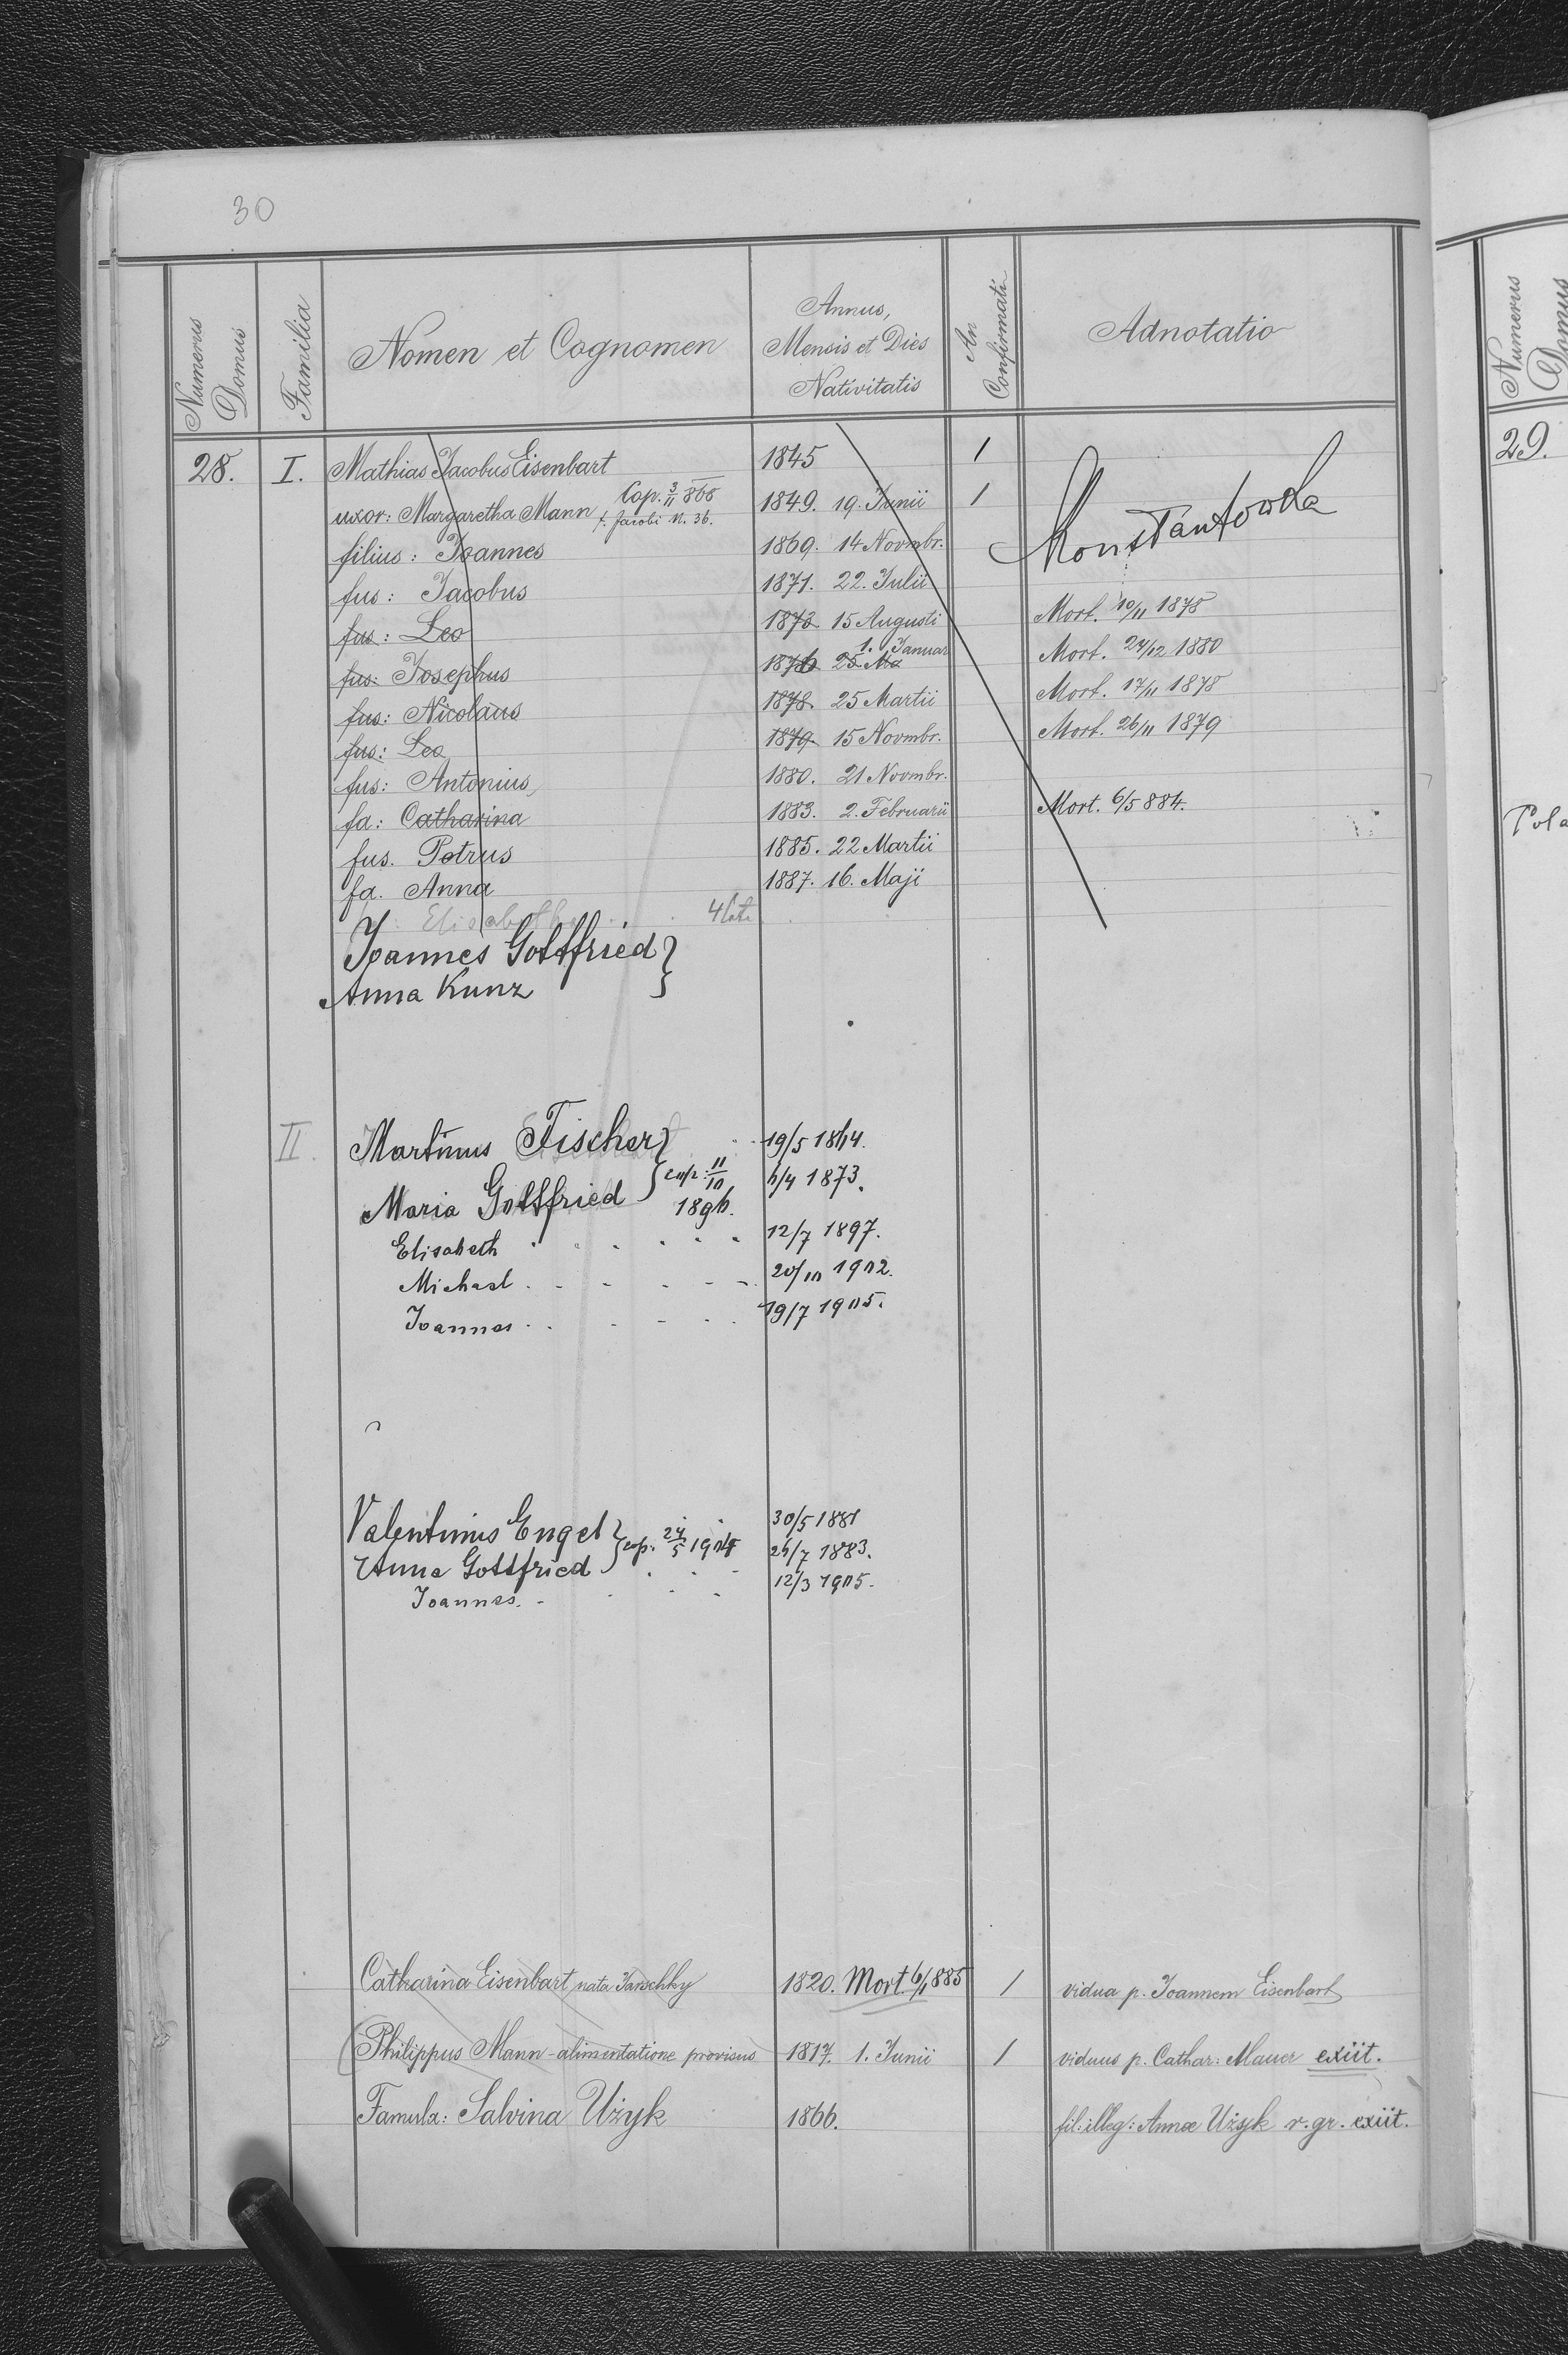 30
Numerus Domus
Familia
Nomen et Cognomen
Annus, Mensis et Dies Nativitatis
An Confirmati
Adnotatio
28. I. Mathias Jacobus Eisenbart 1845 1
uxor: Margaretha Mann Cop. 3/11 868 f. Jacobi N. 36. 1849. 19. Junii 1
Konstantowka
filius: Joannes 1869. 14 Novmbr.
fus: Jacobus 1871. 22. Julii
fus: Leo 1873 15 Augusti Mort. 10/11 1878
fus: Josephus 1876 25 Ma 1. Januar Mort. 24/12 1880
fus: Nicolaus 1878. 25 Martii Mort. 17/11 1878
fus: Leo 1879 15 Novmbr. Mort. 26/11 1879
fus: Antonius 1880. 21 Novmbr.
fa: Catharina 1883. 2. Februarii Mort. 6/5 884.
fus. Petrus 1885. 22 Martii
fa. Anna 1887. 16. Maji
Elisabetha
Joannes Gottfried
Anna Kunz
II. Martinus Fischer 19/5 1864.
Maria Gottfried cop: 11/10 1896. 6/4 1873.
Elisabeth 12/7 1897.
Michael 20/10 1902.
Joannes 19/7 1905.
Valentinus Engel 30/5 1881
Anna Gottfried cop. 24/5 1904 26/7 1883.
Joannes 12/3 1905.
Catharina Eisenbart nata Janschky 1820. Mort. 6/1 885 1 vidua p. Joannem Eisenbart
Philippus Mann - alimentatione provisus 1817. 1. Junii 1 viduus p. Cathar: Mauer exiit.
Famula: Salvina Użyk 1866. fil: illeg: Annæ Użyk r. gr. exiit.
Numerus Domus
29.
Pola